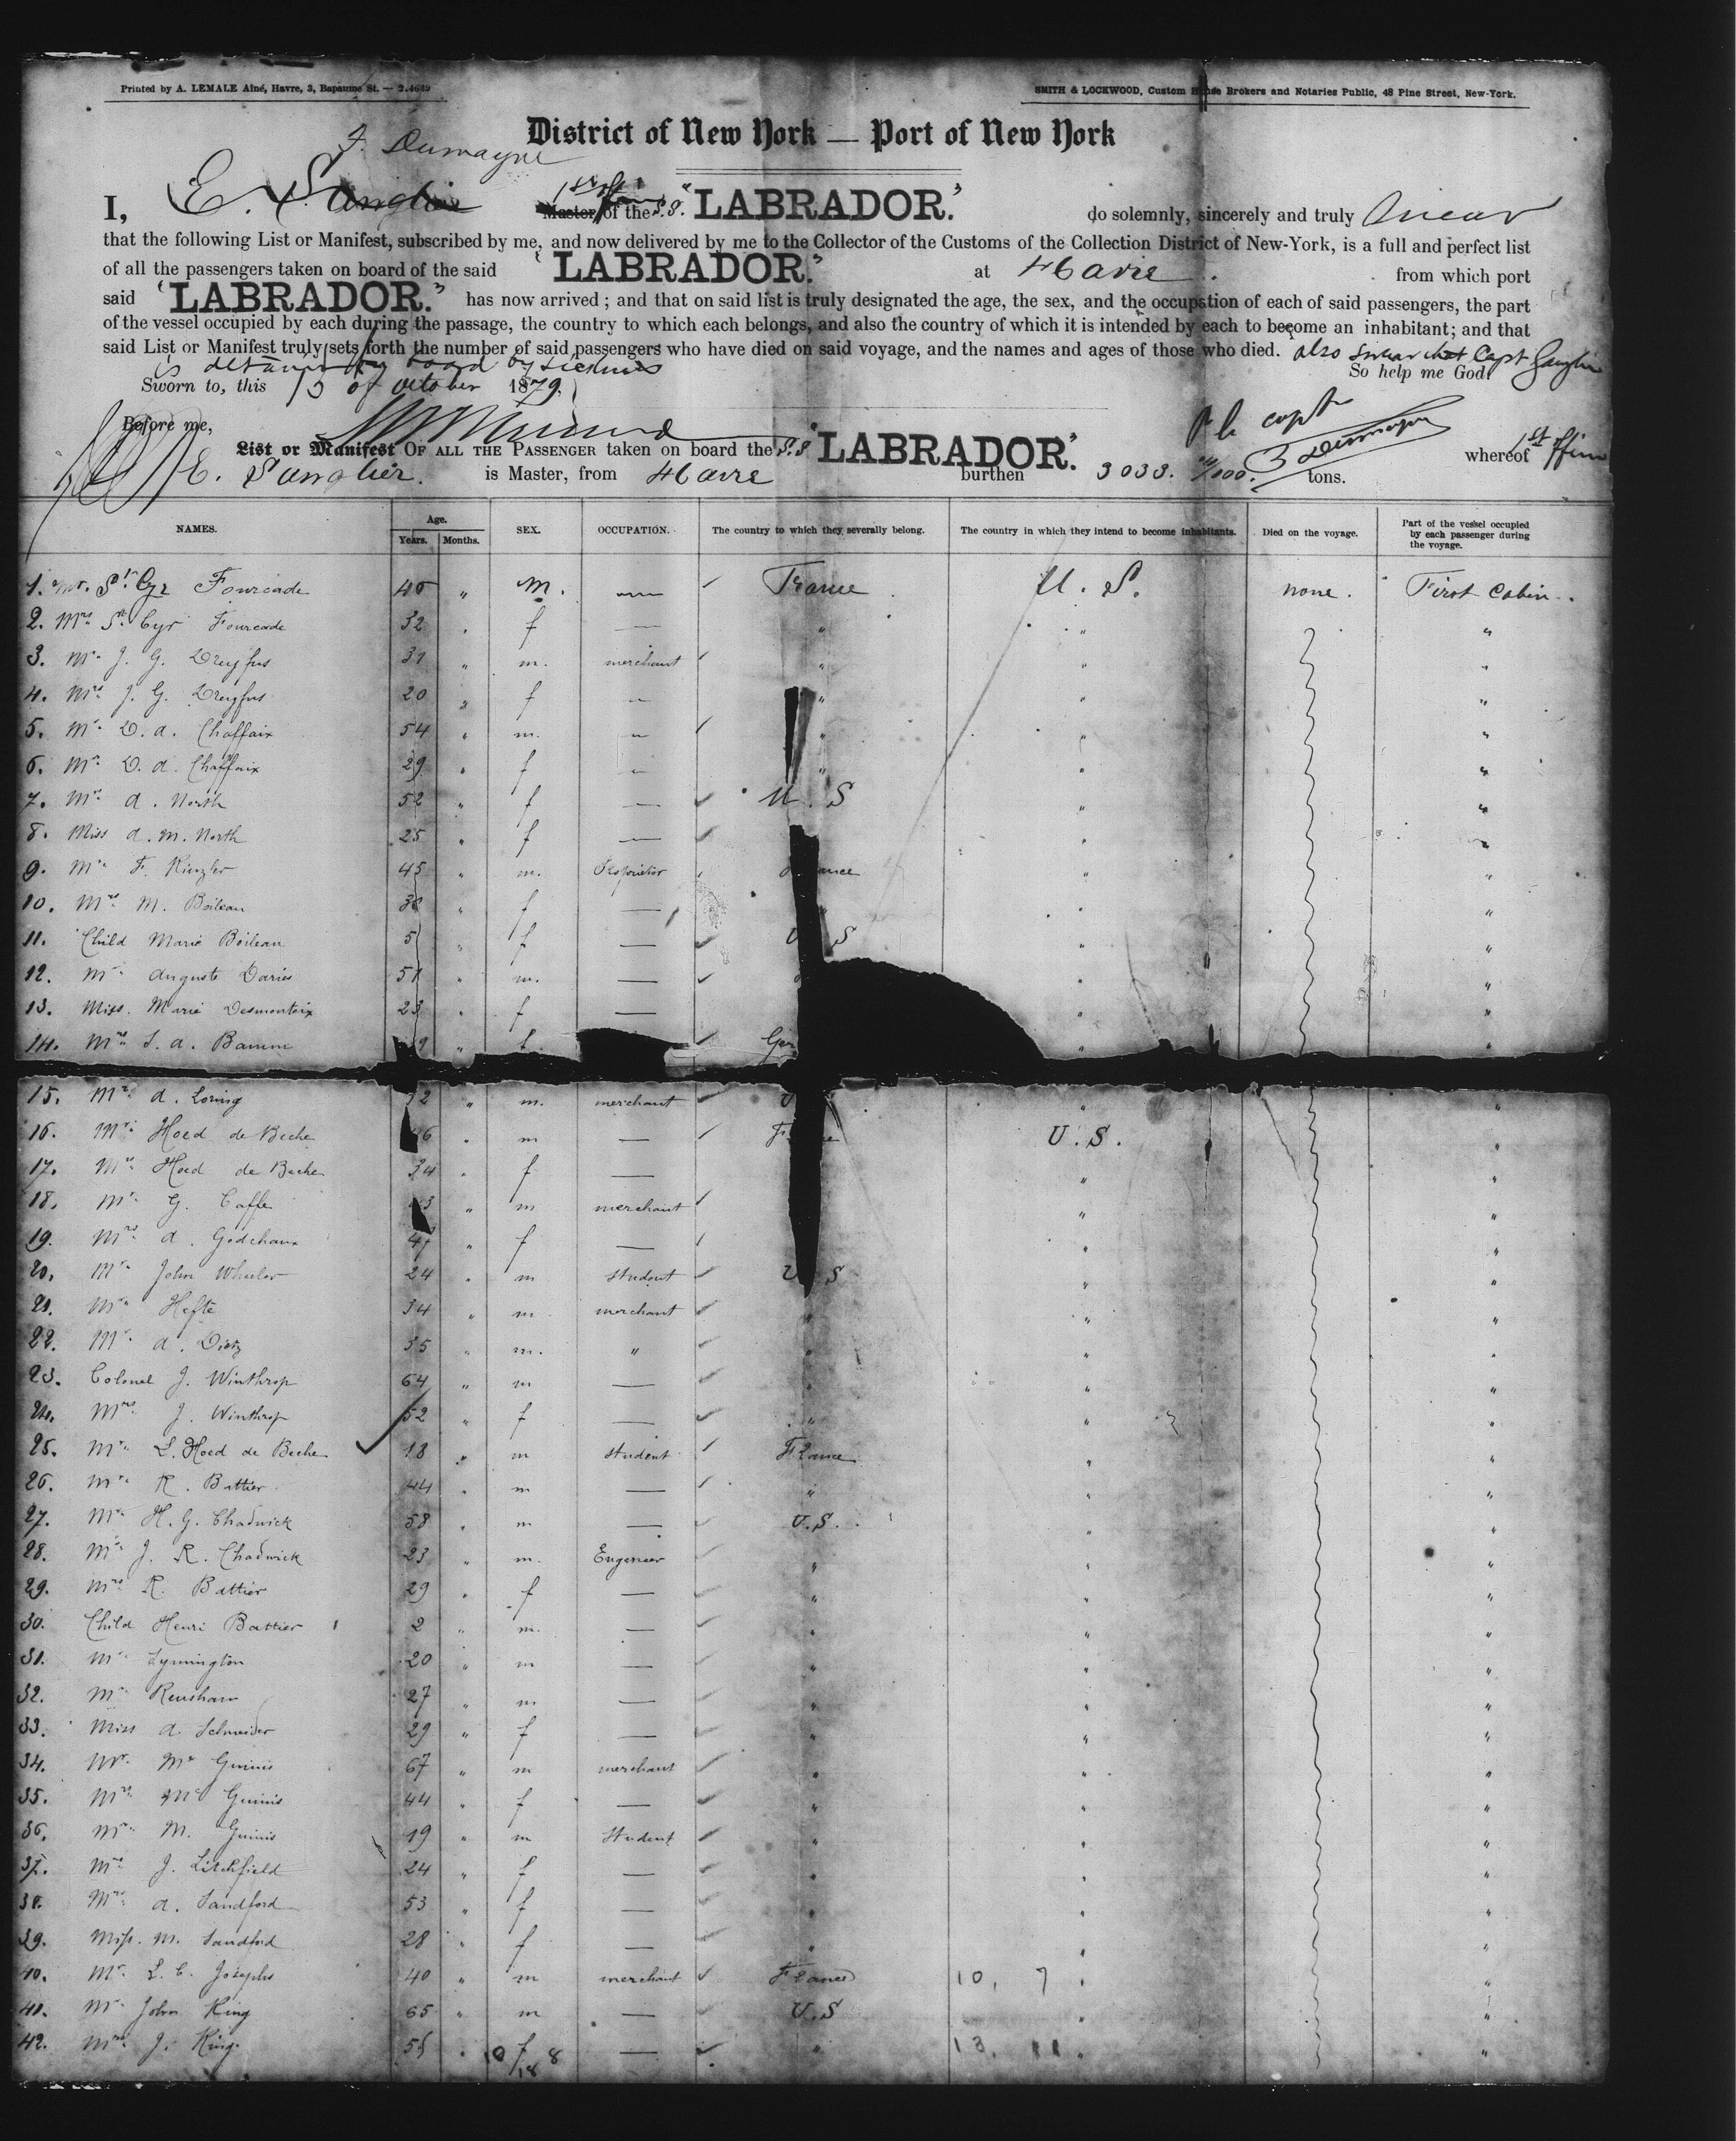 Printed by A. LEMALE Aîné, Havre, 3, Bapaume St. — 2.4649
SMITH & LOCKWOOD, Custom House Brokers and Notaries Public, 48 Pine Street, New-York.
District of New York — Port of New York
F. Dumayne
I, E. Sanglier 1st off Master of the S.S. "LABRADOR." do solemnly, sincerely and truly Swear
that the following List or Manifest, subscribed by me, and now delivered by me to the Collector of the Customs of the Collection District of New-York, is a full and perfect list
of all the passengers taken on board of the said "LABRADOR." at Havre from which port
said "LABRADOR." has now arrived; and that on said list is truly designated the age, the sex, and the occupation of each of said passengers, the part
of the vessel occupied by each during the passage, the country to which each belongs, and also the country of which it is intended by each to become an inhabitant; and that
said List or Manifest truly sets forth the number of said passengers who have died on said voyage, and the names and ages of those who died. also swear that Capt Sanglier
is detained on board by sickness So help me God.
Sworn to, this 15 of October 1879.
Before me,
P le capt
List or Manifest OF ALL THE PASSENGER taken on board the S.S "LABRADOR." whereof 1st officer
E. Sanglier. is Master, from Havre burthen 3033. /100. tons.
NAMES. Age. Years. Months. SEX. OCCUPATION. The country to which they severally belong. The country in which they intend to become inhabitants. Died on the voyage. Part of the vessel occupied by each passenger during the voyage.
1. Mr. St. Cyr Fourcade 40 " m. — France U. S. none. First Cabin.
2. Mrs St. Cyr Fourcade 32 " f — " " "
3. Mr. J. G. Dreyfus 31 " m. merchant " " "
4. Mrs J. G. Dreyfus 20 " f — " " "
5. Mr. D. A. Chaffaix 54 " m. — " " "
6. Mrs D. A. Chaffaix 29 " f — " " "
7. Mrs A. North 52 " f — U. S " "
8. Miss A. M. North 25 " f — " "
9. Mr. F. Kinzler 45 " m. Proprietor France " "
10. Mrs M. Boileau 3 " f — " " "
11. Child Marie Boileau 5 " f — U S " "
12. Mr. Auguste Daries 51 " m. — " "
13. Miss. Marie Desmonteix 23 " f — " "
14. Mrs S. A. Bamm 9 " f Ger " "
15. Mr. A. Loring 2 " m. merchant U " "
16. Mr. Hoed de Beche 46 " m — France U. S. "
17. Mrs Hoed de Beche 34 " f — " "
18. Mr. G. Caffe 3 " m merchant " "
19. Mrs A. Godchaux 47 " f — " "
20. Mr. John Wheeler 24 " m Student U S " "
21. Mr. Hefte 34 " m merchant " " "
22. Mr. A. Dietz 35 " m. " " " "
23. Colonel J. Winthrop 64 " m — " " "
24. Mrs. J. Winthrop 52 " f — " " "
25. Mr. L. Hoed de Beche 18 " m Student France " "
26. Mr. R. Battier 44 " m — " " "
27. Mr. H. G. Chadwick 58 " m — U.S. " "
28. Mr. J. R. Chadwick 23 " m. Engeneer " " "
29. Mrs R. Battier 29 " f — " " "
30. Child Henri Battier 2 " m. — " " "
31. Mr Lymington 20 " m — " " "
32. Mr Renshaw 27 " m — " " "
33. Miss A. Schneider 29 " f — " " "
34. Mr. Mc Guinis 67 " m merchant " " "
35. Mrs Mc Guinis 44 " f — " " "
36. Mr. M. Guinis 19 " m Student " " "
37. Mrs J. Litchfield 24 " f — " " "
38. Mrs A. Sandford 53 " f — " " "
39. Miss. M. Sandford 28 " f — " " "
40. Mr. L. C. Josephs 40 " m merchant France 10, 7 " "
41. Mr. John King 65 " m — U.S " "
42. Mrs J. King. 55 " f — " 13, 11 " "
10 8
18